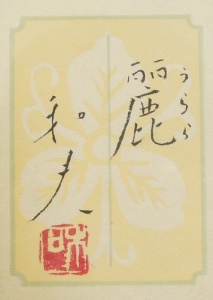 うらら
麗
和夫